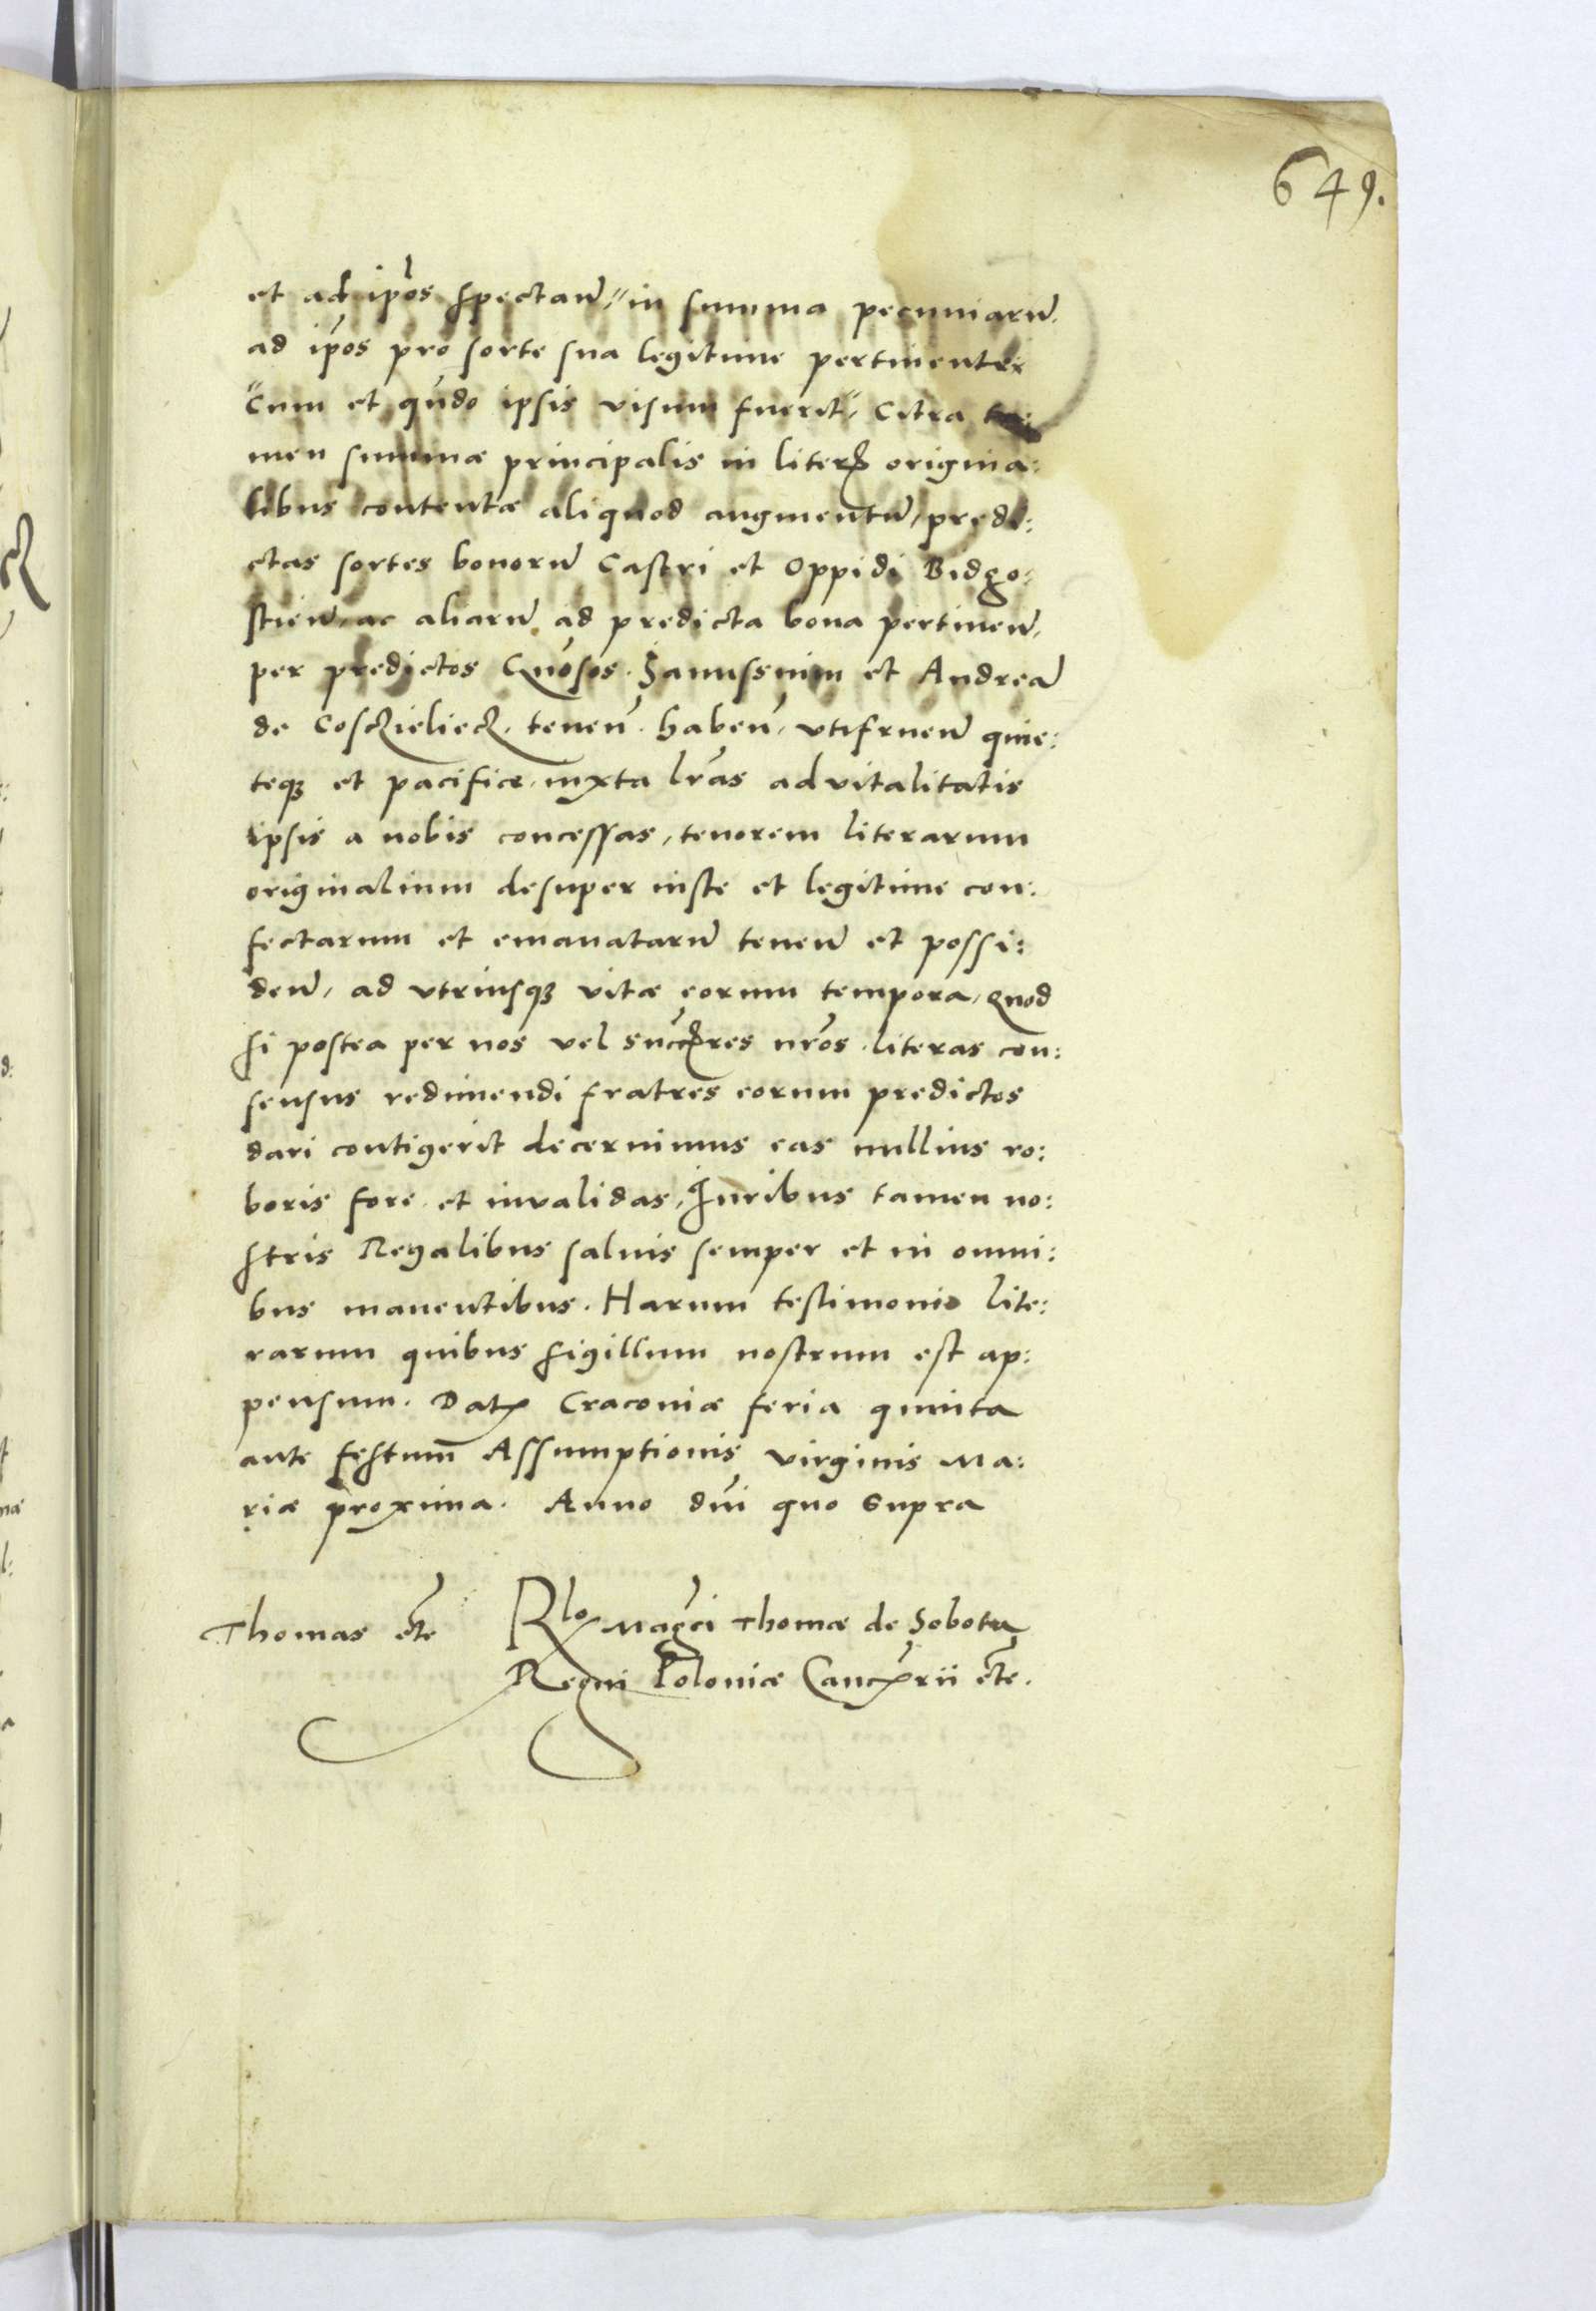 649.
et ad ip̃os spectan̄ in summa pecuniarū
ad ip̃os pro sorte sua legitime pertinente
Cum et qñdo ipsis visum fuerit, Citra ta:
men summæ principalis in literꝭ origina:
libus contentæ aliquod augmentū, predi:
ctas sortes bonorū Castri et Oppidi Bidgo:
stien̄, ac aliarū ad predicta bona pertinen̄,
per predictos Gñosos. Janussium et Andreā
de Cosczieliecz, tenen̄. haben̄, utifruen̄ quie:
teqȝ et pacifice, iuxta lr̃as advitalitatis
ipsis a nobis concessas, tenorem literarum
originalium desuper iuste et legitime con:
fectarum et emanatarū tenen̄ et possi:
den̄, ad vtriusqȝ vitæ eorum tempora, Quod
si postea per nos vel succ̃res nr̃os literas con:
sensus redimendi fratres eorum predictos
dari contigerit decernimus eas nullius ro:
boris fore et invalidas, Juribus tamen no:
stris Regalibus saluis semper et in omni:
bus manentibus. Harum testimonio lite:
rarum quibus sigillum nostrum est ap:
pensum. Datꝭ Cracoviæ feria quinta
ante festum Assumptionis virginis Ma:
riæ proxima. Anno dñi quo supra
Thomas etc̃ Rlo Magc̃i Thomæ de Sobota
Regni Poloniæ Canc̃rii etc̃.